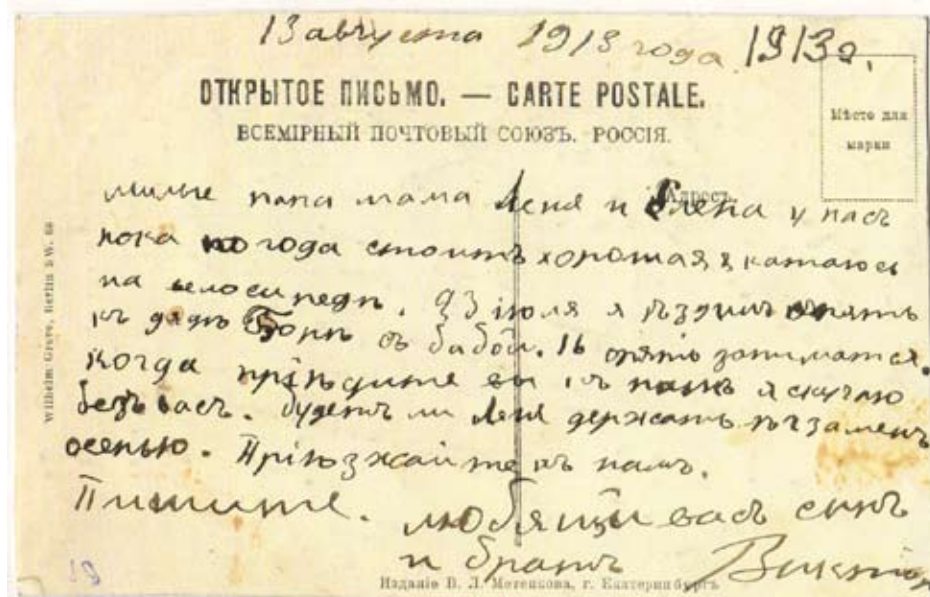 13 августа 1913 года 1913г.
ОТКРЫТОЕ ПИСЬМО. — CARTE POSTALE.
ВСЕМІРНЫЙ ПОЧТОВЫЙ СОЮЗЪ. РОССІЯ.
Мѣсто для
марки
Адресъ.
милые папа мама Леня и Елена у насъ
пока погода стоитъ хорошая я катаюсь
на велосипедѣ. 23 іюля я ѣздилъ опять
къ дядѣ Борѣ съ бабой. 16 опять заниматся.
Когда пріѣдите вы къ намъ я скучаю
безъ васъ. будетъ ли Леня держать ѣкзаменъ
осенью. Пріѣзжайте къ намъ.
Пишите. любящій васъ сынъ
и братъ Виктор
Wilhelm Greve, Berlin SW. 68
18
Изданіе В. Л. Метенкова, г. Екатеринбургъ